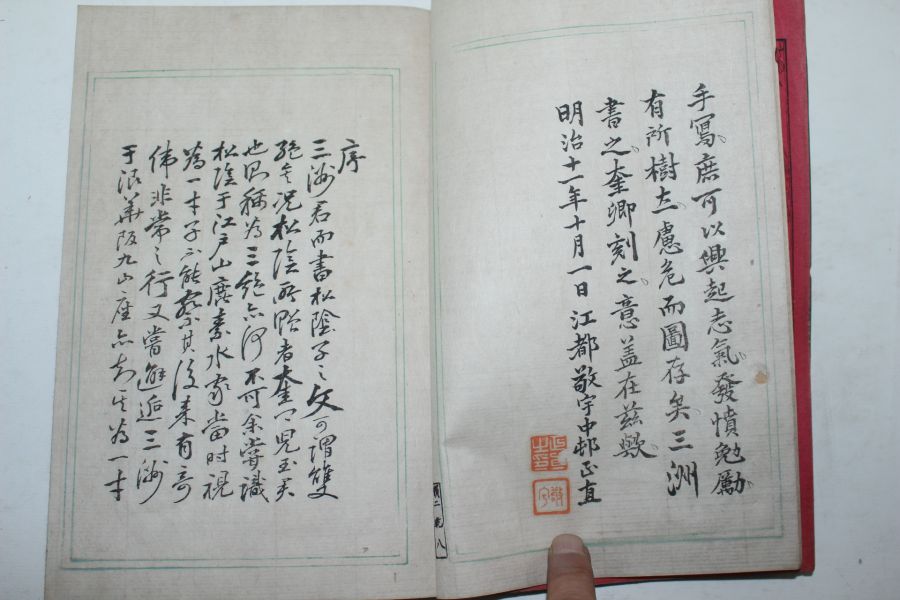 手寫庶可以興起志氣發憤勉勵
有所樹立慮危而圖存矣三洲
書之奎卿刻之意蓋在茲歟
明治十一年十月一日江都敬宇中邨正直
序
三洲君而書松陰子之文可謂雙
絕矣況松陰所貽者奎卿兒玉君
也即稱為三絕亦何不可余嘗識
松陰于江戶山鹿素水家當時視
為一才子不能察其後來有奇
偉非常之行又嘗邂逅三洲
于浪華阪九山座亦知其為一才